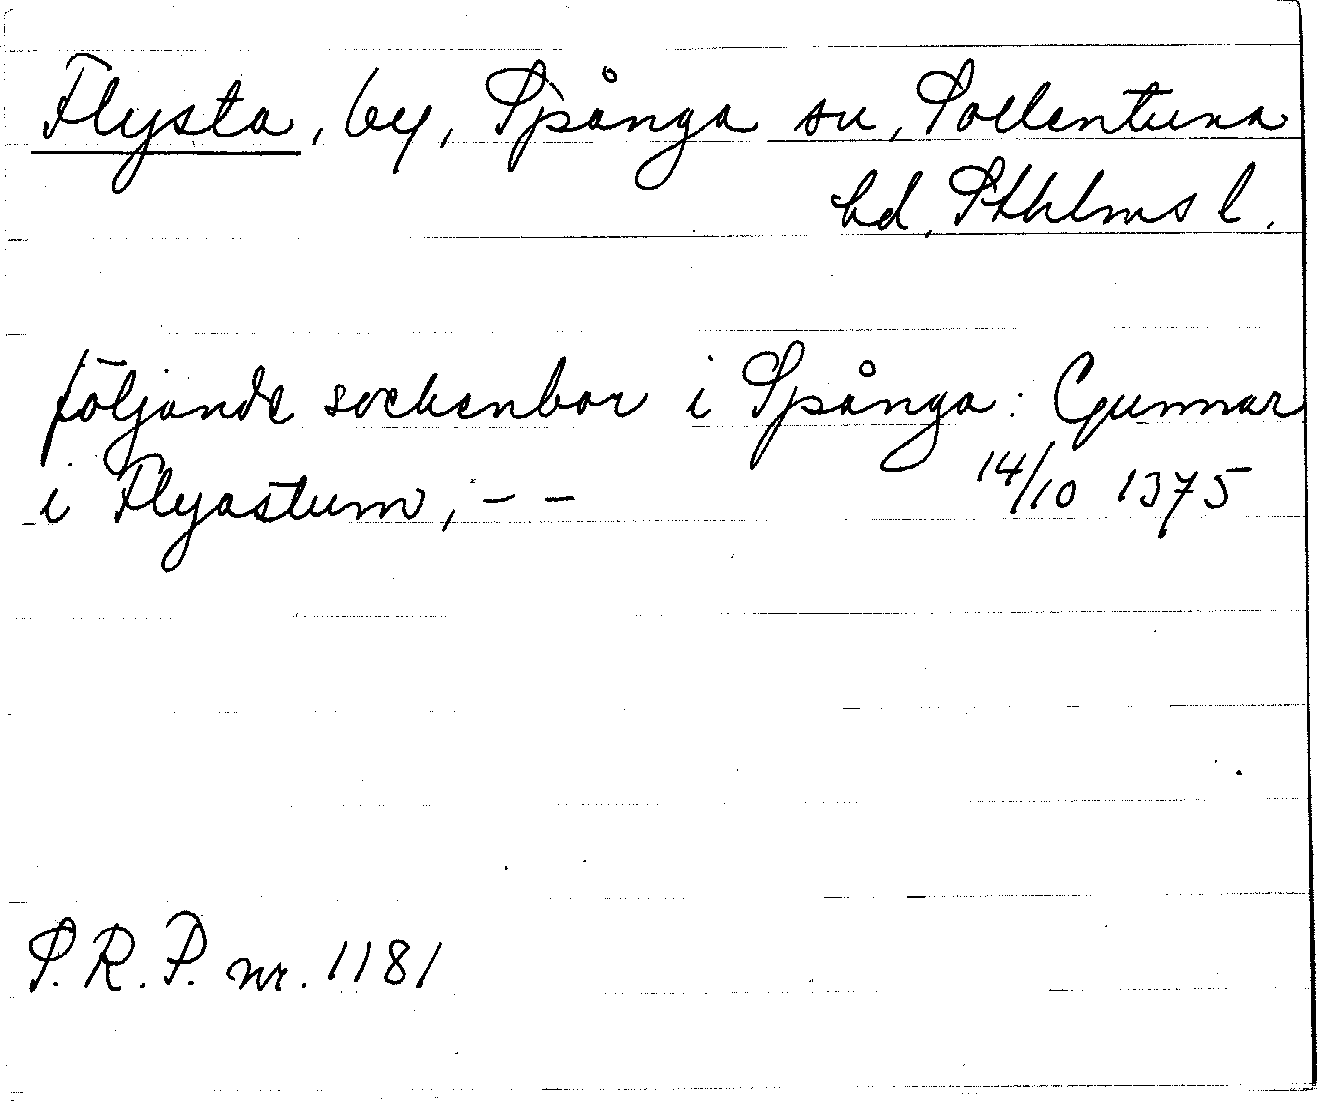 Flysta, by, Spånga sn, Sollentuna
hd, Sthlms l.
följande sockenbor i Spånga: Gunnar
i Flyastum, - - 14/10 1375
S.R.P. nr. 1181